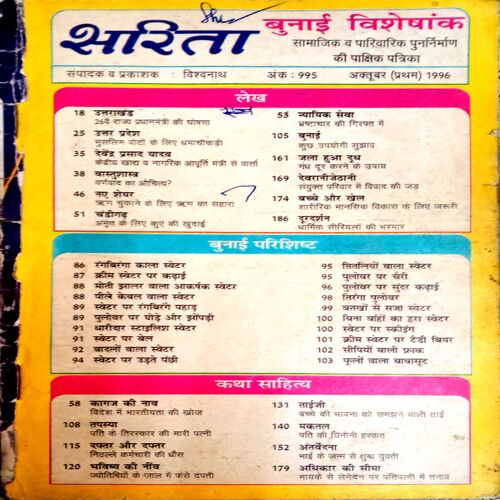 सरिता
बुनाई विशेषांक
सामाजिक व पारिवारिक पुनर्निर्माण
की पाक्षिक पत्रिका
संपादक व प्रकाशक : विश्वनाथ अंक : 995 अक्तूबर (प्रथम) 1996
लेख
18 उत्तराखंड
26वें राज्य प्रधानमंत्री की घोषणा
25 उत्तर प्रदेश
मुसलिम वोटों के लिए धमाचौकड़ी
35 देवेंद्र प्रसाद यादव
केंद्रीय खाद्य व नागरिक आपूर्ति मंत्री से वार्ता
38 वास्तुशास्त्र
वर्णवाद का औचित्य?
46 नए शेयर
ऋण चुकाने के लिए ऋण का सहारा
51 चंडीगढ़
अमृत के लिए कुएं की खुदाई
53 न्यायिक सेवा
भ्रष्टाचार की गिरफ्त में
105 बुनाई
कुछ उपयोगी सुझाव
161 जला हुआ दूध
गंध दूर करने के उपाय
169 देवरानीजेठानी
संयुक्त परिवार में विवाद की जड़
174 बच्चे और खेल
शारीरिक मानसिक विकास के लिए जरूरी
186 दूरदर्शन
धार्मिक सीरियलों की भरमार
बुनाई परिशिष्ट
86 रंगबिरंगा काला स्वेटर
87 क्रीम स्वेटर पर कढ़ाई
88 मोती झालर वाला आकर्षक स्वेटर
88 पीले केबल वाला स्वेटर
89 स्वेटर पर रंगबिरंगे पहाड़
89 पुलोवर पर घोड़े और झोंपड़ी
91 धारीदार स्टाइलिश स्वेटर
91 स्वेटर पर बेल
92 बादलों वाला स्वेटर
94 स्वेटर पर उड़ते पंछी
95 तितलियों वाला स्वेटर
95 पुलोवर पर चैरी
96 पुलोवर पर सुंदर कढ़ाई
98 तिरंगा पुलोवर
99 बतखों से सजा स्वेटर
100 बिना बांहों का हरा स्वेटर
100 स्वेटर पर स्कीइंग
101 क्रीम स्वेटर पर टैडी बियर
102 सीपियों वाली फ्राक
103 फूलों वाला बाबासूट
कथा साहित्य
58 कागज की नाव
विदेश में भारतीयता की खोज
108 तपस्या
पति के तिरस्कार की मारी पत्नी
115 दफ्तर और दफ्तर
निठल्ले कर्मचारी की धौंस
120 भविष्य की नींव
ज्योतिषियों के जाल में फंसे दंपती
131 ताईजी
बच्चे की भावना को समझने वाली ताई
140 मकतल
पति की घिनौनी हरकत
152 अंतर्वेदना
भाई के जन्म से क्षुब्ध युवती
179 अधिकार की सीमा
मायके से लेनेदेन पर पतिपत्नी में तनाव